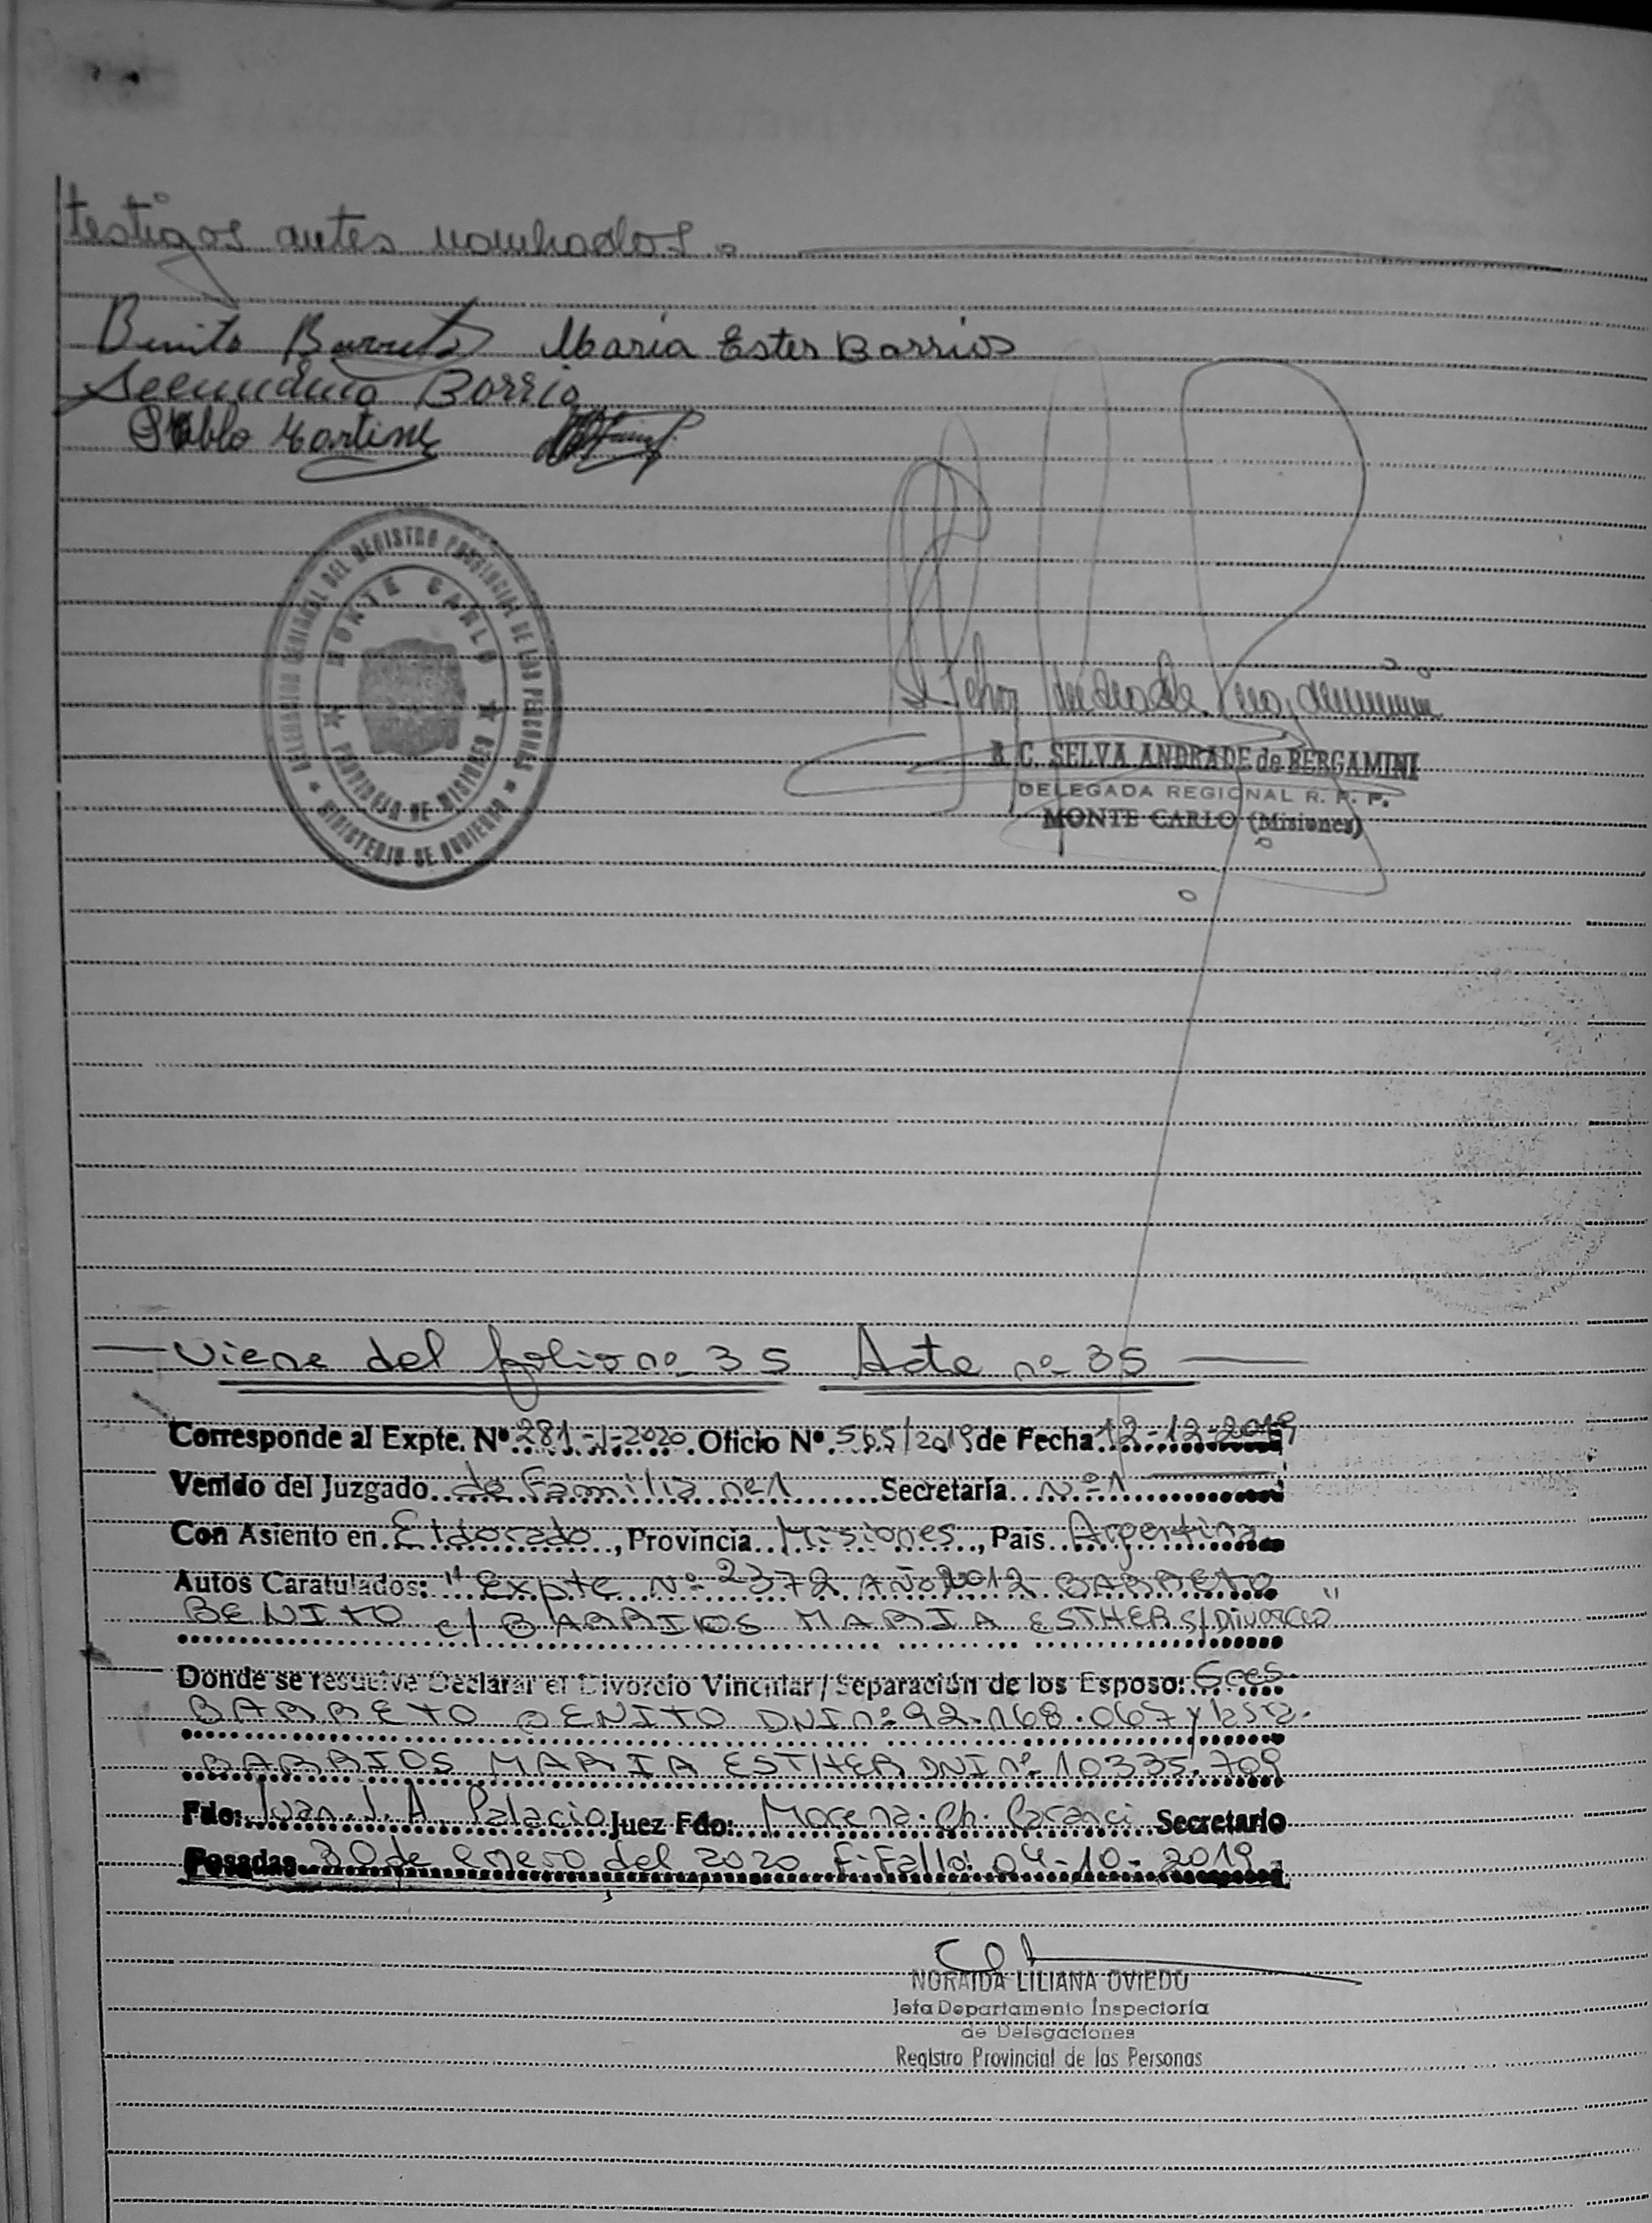 testigos antes nombrados.
Benito Barreto María Ester Barrios
Secundino Barrio
Pablo Martinez
DELEGACION REGIONAL DEL REGISTRO PROVINCIAL DE LAS PERSONAS
MONTE CARLO
PROVINCIA DE MISIONES
MINISTERIO DE GOBIERNO
Selva Andrade Bergamini
R. C. SELVA ANDRADE de BERGAMINI
DELEGADA REGIONAL R. P. P.
MONTE CARLO (Misiones)
Viene del folio nº 35 Acta nº 35
Corresponde al Expte. Nº 281-J-2020 Oficio Nº 565/2019 de Fecha 12-12-2019
Venido del Juzgado de Familia nº1 Secretaría Nº 1
Con Asiento en Eldorado, Provincia Misiones, País Argentina
Autos Caratulados: "Expte Nº 2372 Año 2012 BARRETO
BENITO c/ BARRIOS MARIA ESTHER s/ Divorcio"
Donde se resuelve Declarar el Divorcio Vincular / Separación de los Esposo:
BARRETO BENITO DNI nº 92.168.067 y
BARRIOS MARIA ESTHER DNI nº 10335.709
Fdo: Juan J. A. Palacio Juez Fdo: Morena Ch. Secretario
Posadas 30 de enero del 2020 F. Fallo: 04-10-2019
NORAIDA LILIANA OVIEDO
Jefa Departamento Inspectoría
de Delegaciones
Registro Provincial de las Personas